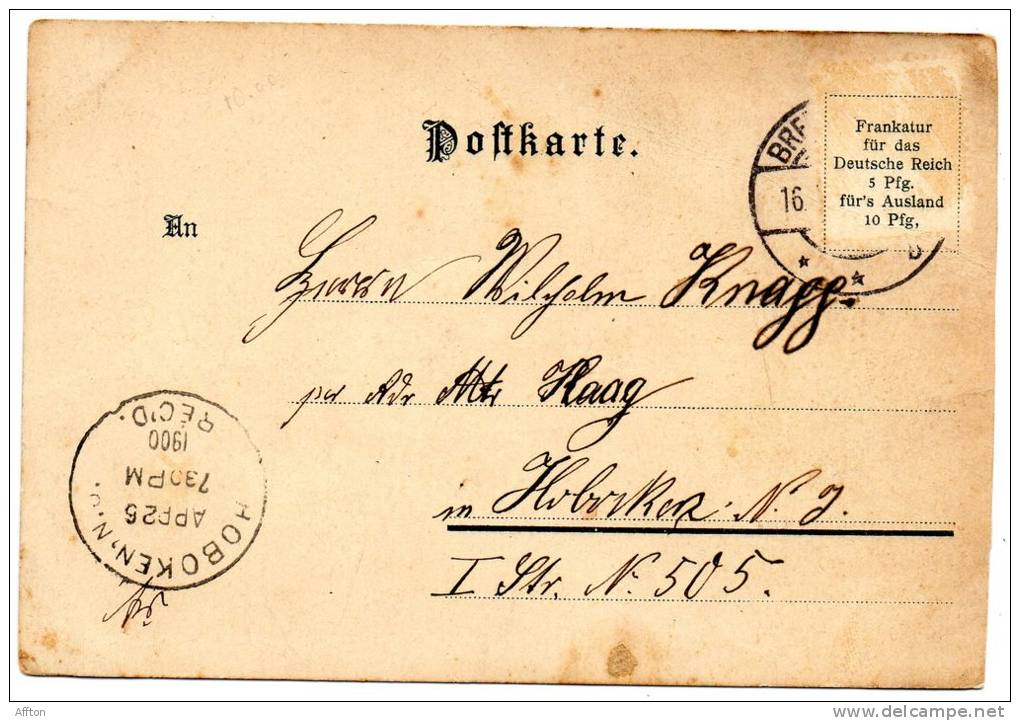 Postkarte.
BRE
16.
Frankatur
für das
Deutsche Reich
5 Pfg.
für's Ausland
10 Pfg,
An
Herrn Wilhelm Knagg.
per Adr Haag
in Hoboken N. J.
I Str. N. 505.
HOBOKEN, N.J.
APR 26
730PM
1900
REC'D.
Affton
www.delcampe.net